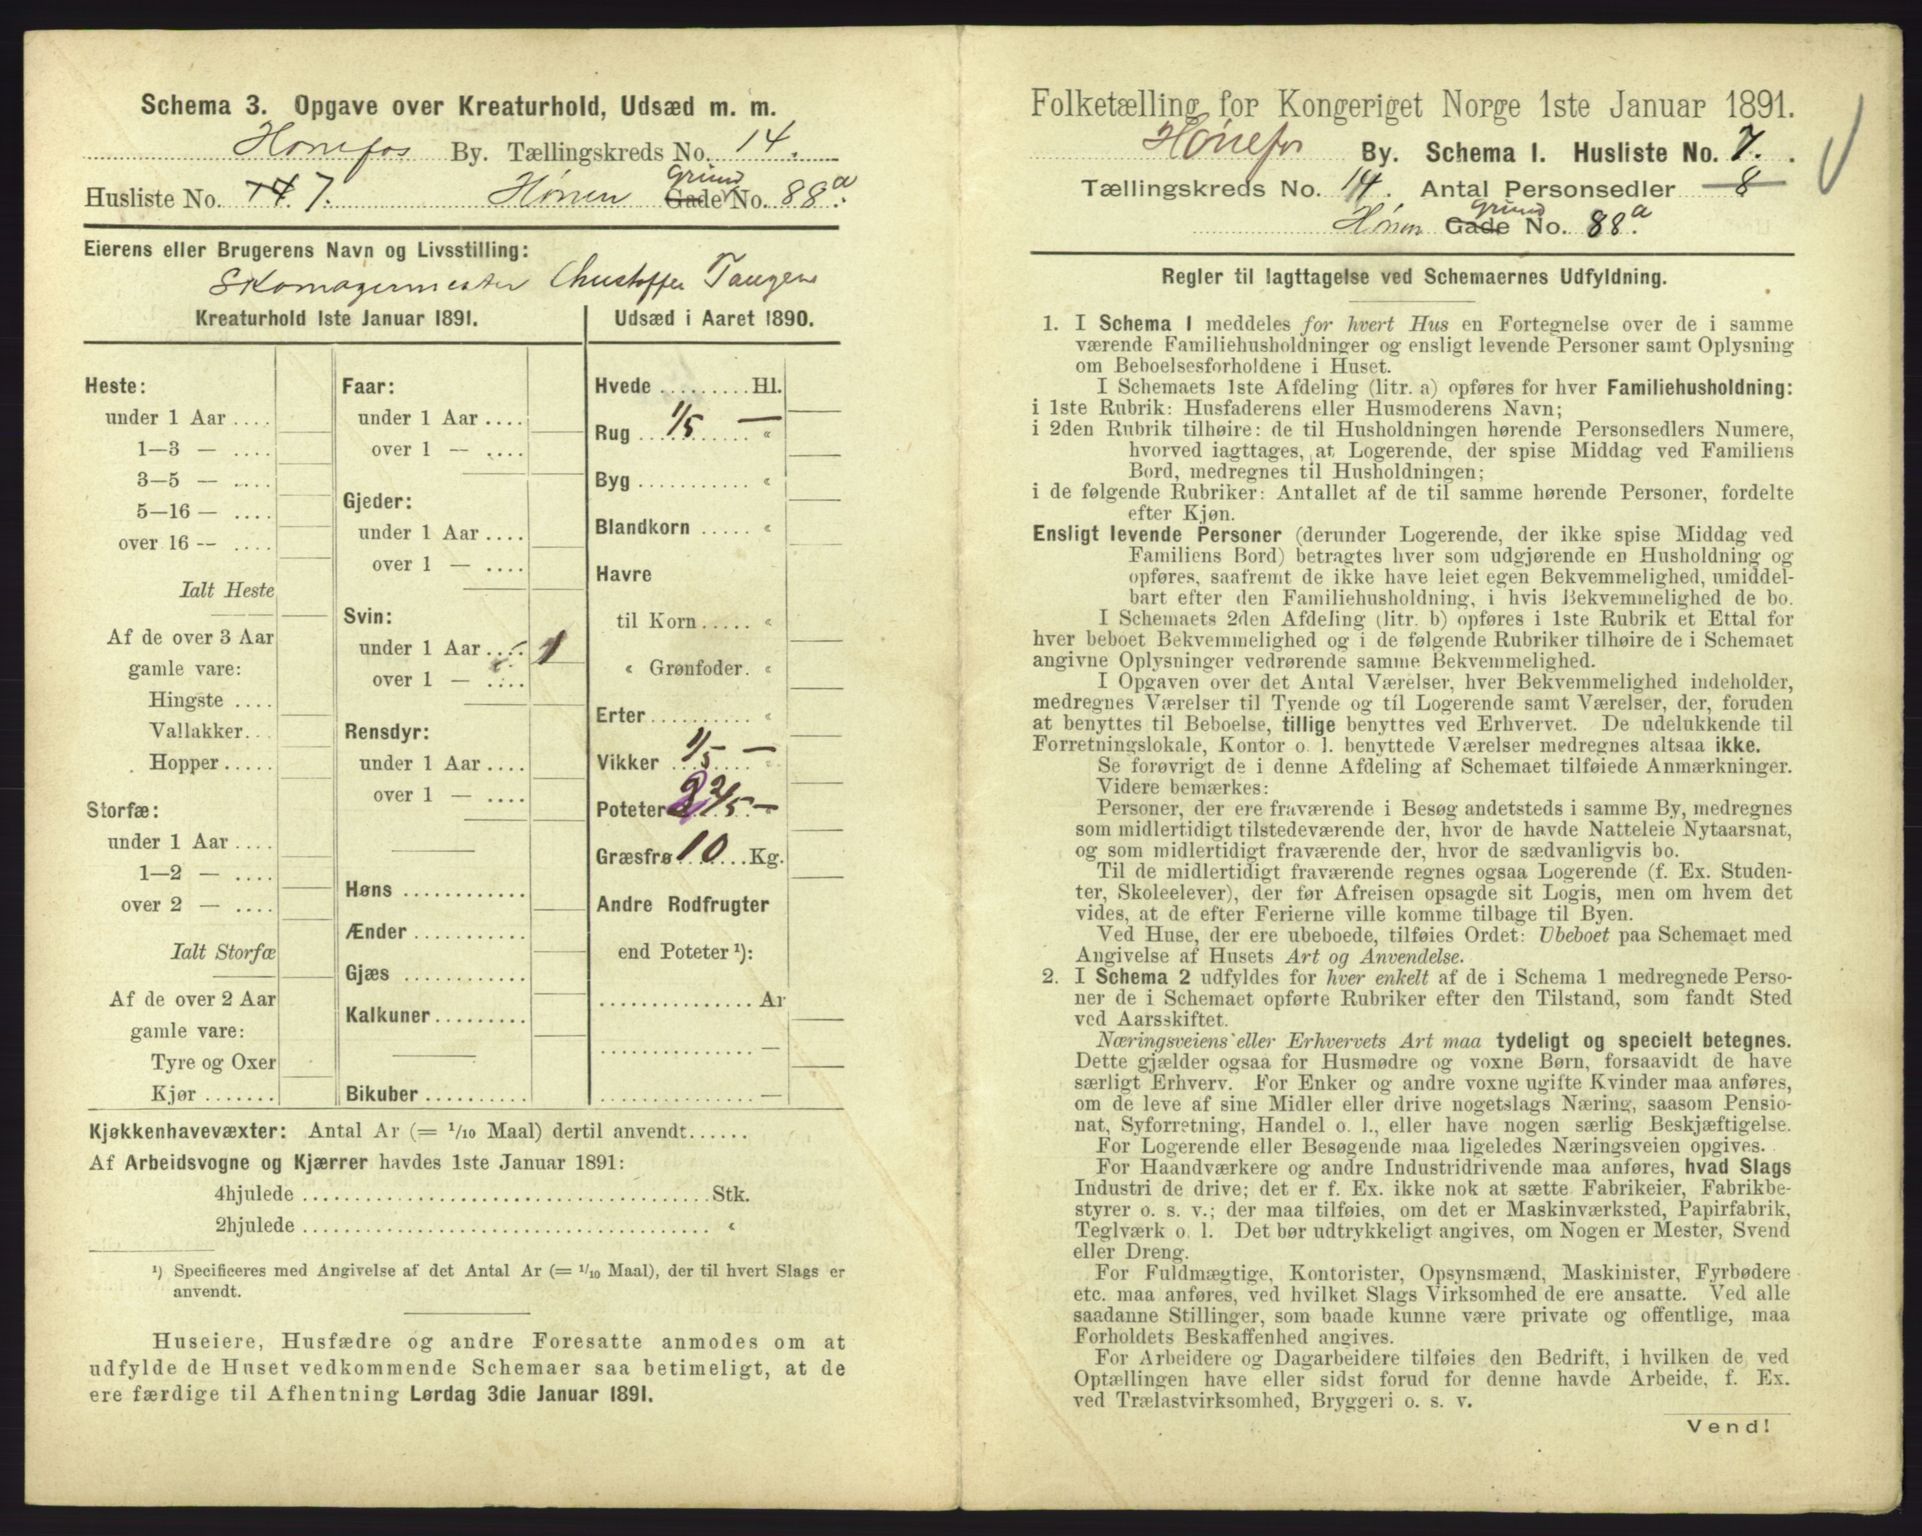 Schema 3. Opgave over Kreaturhold, Udsæd m. m.
Hønefos By. Tællingskreds No. 14.
Husliste No. 14. 7. Hønen Gade Grund No. 88a.
Eierens eller Brugerens Navn og Livsstilling:
Skomagermester Christoffer Tangen
Kreaturhold 1ste Januar 1891.
Heste:
under 1 Aar ....
1—3 — ....
3—5 — ....
5—16 — ....
over 16 -- ....
Ialt Heste
Af de over 3 Aar
gamle vare:
Hingste ....
Vallakker...
Hopper .....
Storfæ:
under 1 Aar ....
1—2 — ....
over 2 — ....
Ialt Storfæ
Af de over 2 Aar
gamle vare:
Tyre og Oxer
Kjør .......
Faar:
under 1 Aar ....
over 1 — ....
Gjeder:
under 1 Aar ....
over 1 — ....
Svin:
under 1 Aar .... 1
over 1 — ....
Rensdyr:
under 1 Aar ....
over 1 — ....
Høns ............
Ænder ...........
Gjæs ............
Kalkuner.........
Bikuber ..........
Udsæd i Aaret 1890.
Hvede ......... Hl.
Rug .... 1/5 — «
Byg ............ «
Blandkorn ..... «
Havre
til Korn..... «
« Grønfoder. «
Erter.......... «
Vikker 1/5 — «
Poteter 2 2/5 — «
Græsfrø 10 ....Kg.
Andre Rodfrugter
end Poteter ¹):
................ Ar
................ —
................ —
Kjøkkenhavevæxter: Antal Ar (= 1/10 Maal) dertil anvendt......
Af Arbeidsvogne og Kjærrer havdes 1ste Januar 1891:
4hjulede ........................................Stk.
2hjulede ........................................ «
¹) Specificeres med Angivelse af det Antal Ar (= 1/10 Maal), der til hvert Slags er
anvendt.
Huseiere, Husfædre og andre Foresatte anmodes om at
udfylde de Huset vedkommende Schemaer saa betimeligt, at de
ere færdige til Afhentning Lørdag 3die Januar 1891.
Folketælling for Kongeriget Norge 1ste Januar 1891.
Hønefos By. Schema I. Husliste No. 7.
Tællingskreds No. 14. Antal Personsedler 8
Hønen Gade Grund No. 88a.
Regler til Iagttagelse ved Schemaernes Udfyldning.
1. I Schema I meddeles for hvert Hus en Fortegnelse over de i samme
værende Familiehusholdninger og ensligt levende Personer samt Oplysning
om Beboelsesforholdene i Huset.
I Schemaets 1ste Afdeling (litr. a) opføres for hver Familiehusholdning:
i 1ste Rubrik: Husfaderens eller Husmoderens Navn;
i 2den Rubrik tilhøire: de til Husholdningen hørende Personsedlers Numere,
hvorved iagttages, at Logerende, der spise Middag ved Familiens
Bord, medregnes til Husholdningen;
i de følgende Rubriker: Antallet af de til samme hørende Personer, fordelte
efter Kjøn.
Ensligt levende Personer (derunder Logerende, der ikke spise Middag ved
Familiens Bord) betragtes hver som udgjørende en Husholdning og
opføres, saafremt de ikke have leiet egen Bekvemmelighed, umiddel-
bart efter den Familiehusholdning, i hvis Bekvemmelighed de bo.
I Schemaets 2den Afdeling (litr. b) opføres i 1ste Rubrik et Ettal for
hver beboet Bekvemmelighed og i de følgende Rubriker tilhøire de i Schemaet
angivne Oplysninger vedrørende samme Bekvemmelighed.
I Opgaven over det Antal Værelser, hver Bekvemmelighed indeholder,
medregnes Værelser til Tyende og til Logerende samt Værelser, der, foruden
at benyttes til Beboelse, tillige benyttes ved Erhvervet. De udelukkende til
Forretningslokale, Kontor o. l. benyttede Værelser medregnes altsaa ikke.
Se forøvrigt de i denne Afdeling af Schemaet tilføiede Anmærkninger.
Videre bemærkes:
Personer, der ere fraværende i Besøg andetsteds i samme By, medregnes
som midlertidigt tilstedeværende der, hvor de havde Natteleie Nytaarsnat,
og som midlertidigt fraværende der, hvor de sædvanligvis bo.
Til de midlertidigt fraværende regnes ogsaa Logerende (f. Ex. Studen-
ter, Skoleelever), der før Afreisen opsagde sit Logis, men om hvem det
vides, at de efter Ferierne ville komme tilbage til Byen.
Ved Huse, der ere ubeboede, tilføies Ordet: Ubeboet paa Schemaet med
Angivelse af Husets Art og Anvendelse.
2. I Schema 2 udfyldes for hver enkelt af de i Schema 1 medregnede Perso-
ner de i Schemaet opførte Rubriker efter den Tilstand, som fandt Sted
ved Aarsskiftet.
Næringsveiens eller Erhvervets Art maa tydeligt og specielt betegnes.
Dette gjælder ogsaa for Husmødre og voxne Børn, forsaavidt de have
særligt Erhverv. For Enker og andre voxne ugifte Kvinder maa anføres,
om de leve af sine Midler eller drive nogetslags Næring, saasom Pensio-
nat, Syforretning, Handel o. l., eller have nogen særlig Beskjæftigelse.
For Logerende eller Besøgende maa ligeledes Næringsveien opgives.
For Haandværkere og andre Industridrivende maa anføres, hvad Slags
Industri de drive; det er f. Ex. ikke nok at sætte Fabrikeier, Fabrikbe-
styrer o. s. v.; der maa tilføies, om det er Maskinværksted, Papirfabrik,
Teglværk o. l. Det bør udtrykkeligt angives, om Nogen er Mester, Svend
eller Dreng.
For Fuldmægtige, Kontorister, Opsynsmænd, Maskinister, Fyrbødere
etc. maa anføres, ved hvilket Slags Virksomhed de ere ansatte. Ved alle
saadanne Stillinger, som baade kunne være private og offentlige, maa
Forholdets Beskaffenhed angives.
For Arbeidere og Dagarbeidere tilføies den Bedrift, i hvilken de ved
Optællingen have eller sidst forud for denne havde Arbeide, f. Ex.
ved Trælastvirksomhed, Bryggeri o. s. v.
Vend!